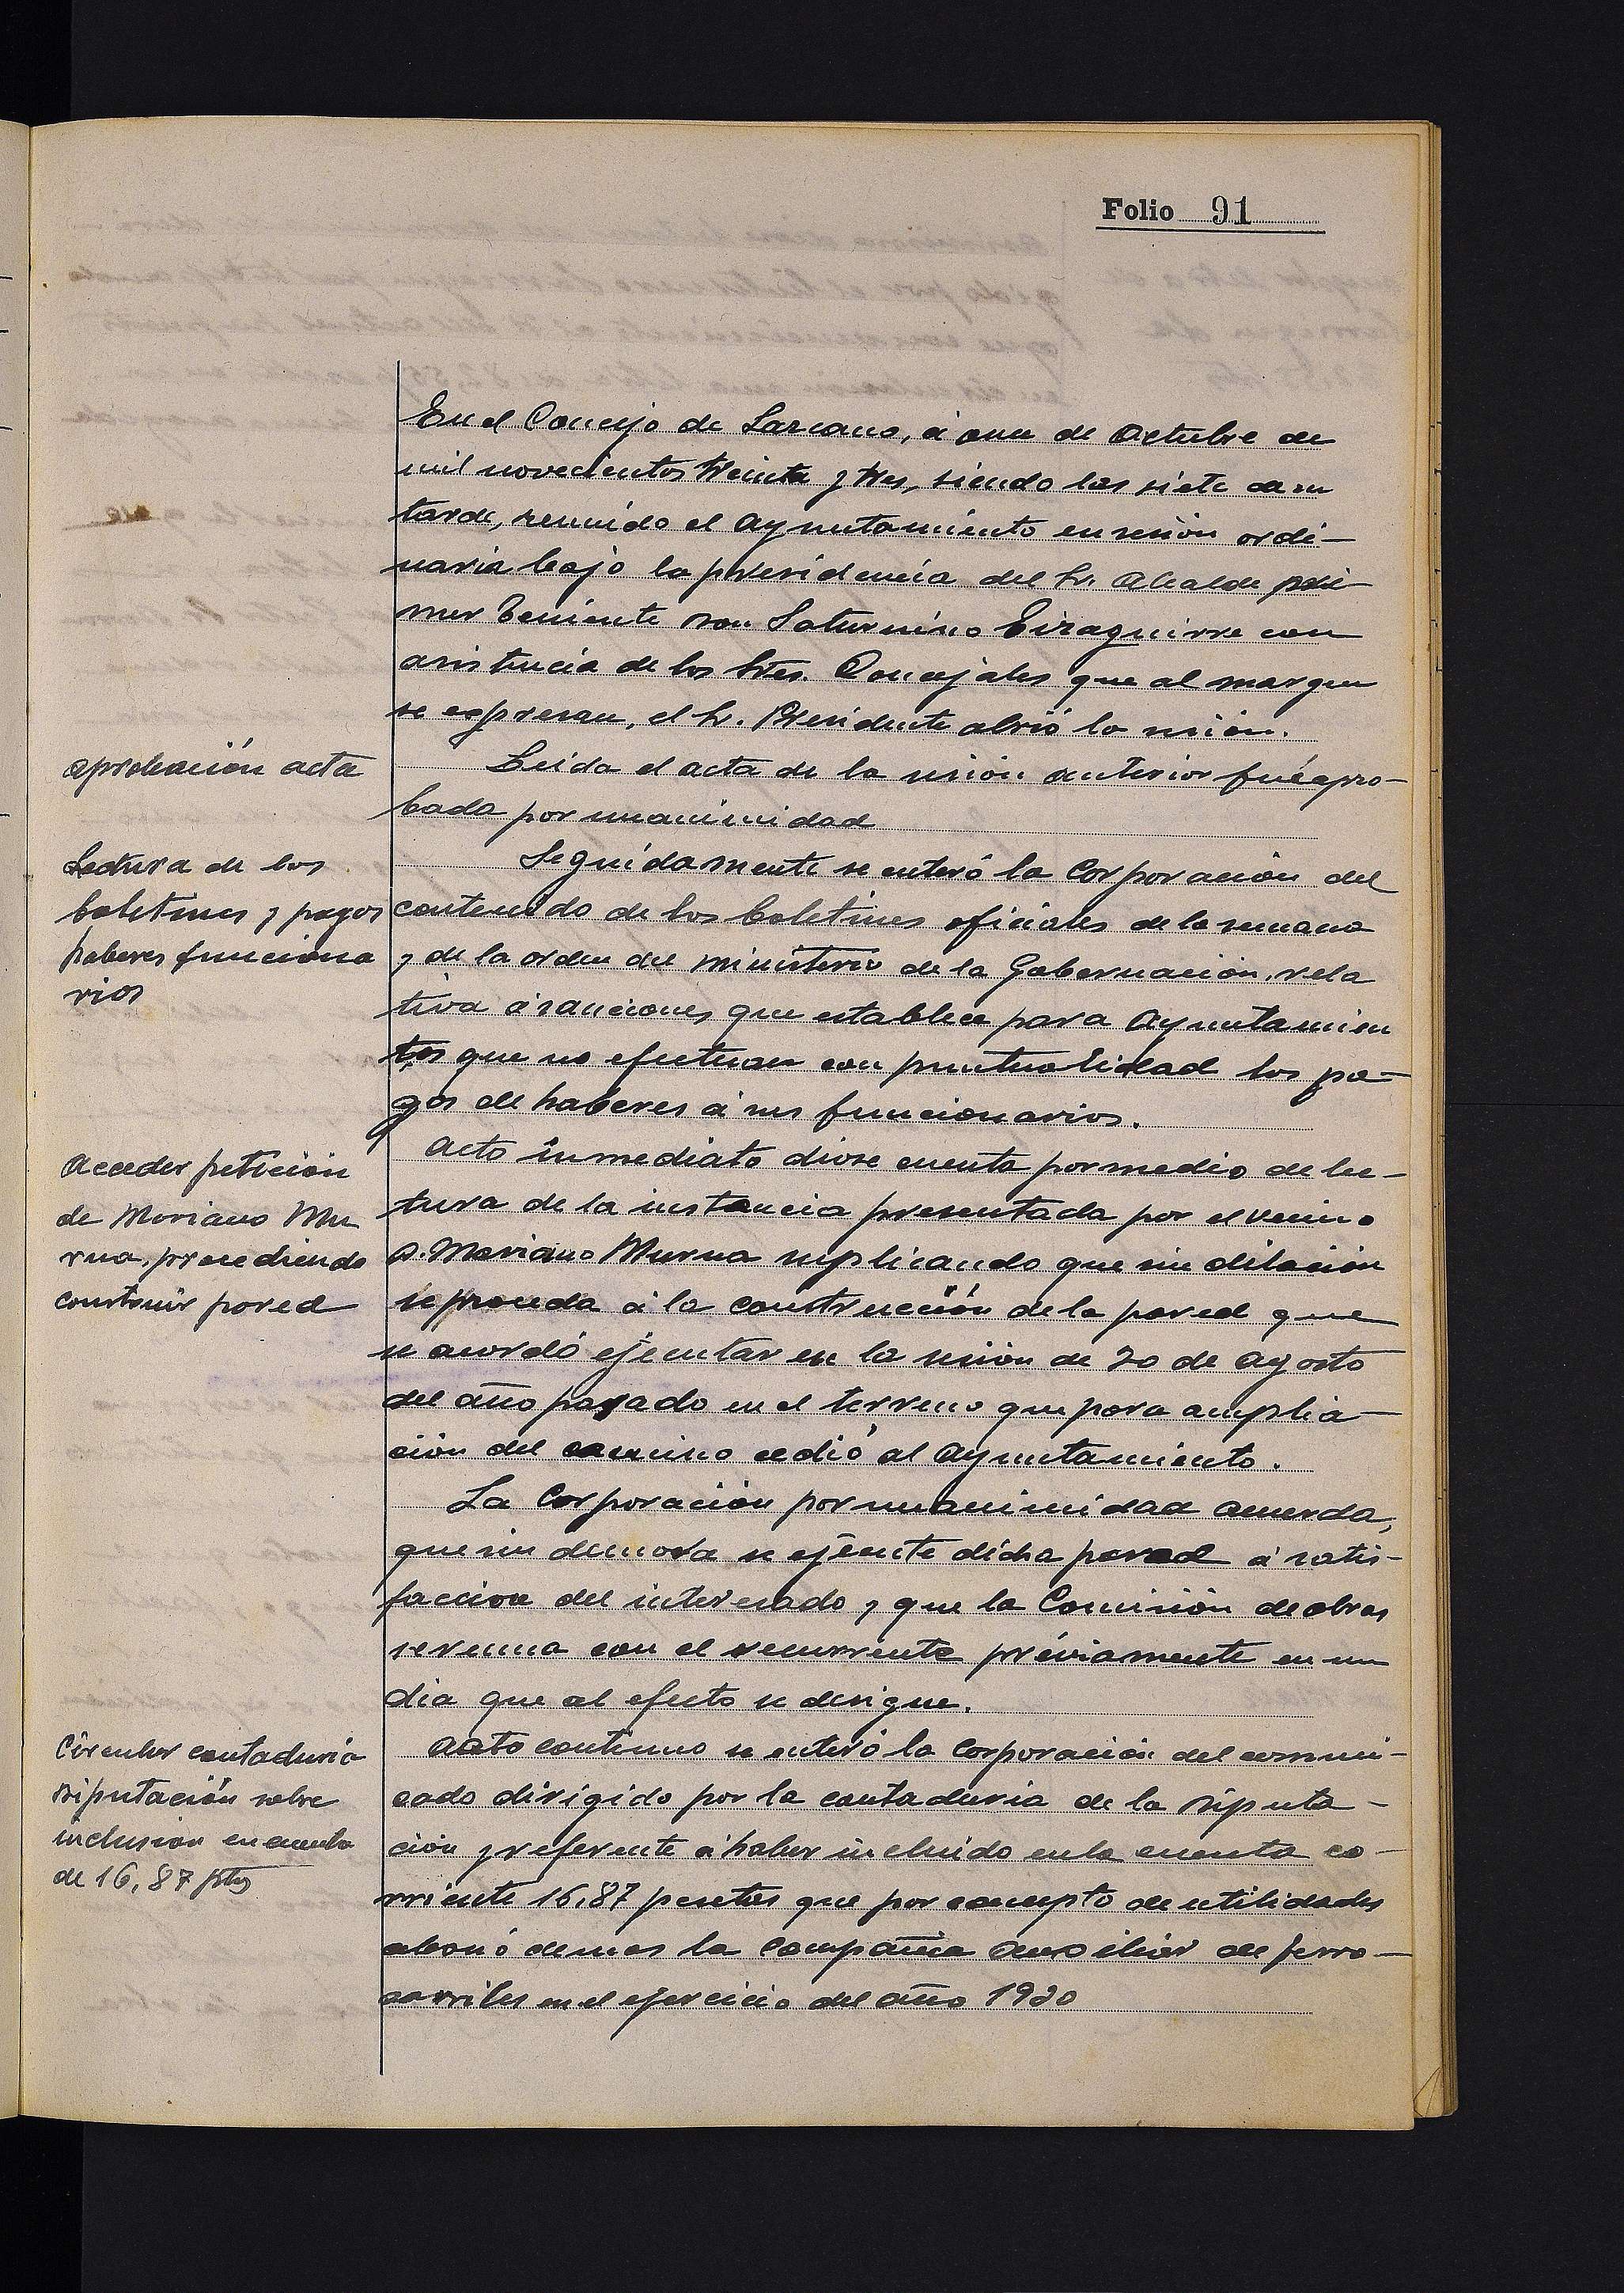 Folio 91
En el Concejo de Lazcano, á once de Octubre de
mil novecientos treinta y tres, siendo las siete de su
tarde, reunido el Ayuntamiento en sesión ordi-
naria bajo la presidencia del Sr. Alcalde pri
mer Teniente Don Saturnino Eizaguirre con
asistencia de los Sres. Concejales que al margen
se expresan, el Sr. Presidente abrió la sesión.
aprobación acta
Leida el acta de la sesión anterior fué apro-
bada por unanimidad
Lectura de los
boletines y pagos
haberes funciona
rios
Seguídamente se enteró la Corporación del
contenido de los boletines oficiales de la semana
y de la orden del ministerio de la Gobernación, rela
tiva á sanciones que establece para Ayuntamien
tos que no efectuen con puntualidad los pa-
gos de haberes á sus funcionarios.
Acceder petición
de Mariano Mu
rua, procediendo
construir pared
Acto inmediato diose cuenta por medio de lec-
tura de la instancia presentada por el vecino
D. Mariano Murua suplicando que sin dilación
se proceda á la construcción de la pared que
se acordó ejecutar en la sesión de 20 de Agosto
del año pasado en el terreno que para amplia-
ción del camino cedió al Ayuntamiento.
La Corporación por unanimidad acuerda,
que sin demora se ejecute dicha pared á satis-
faccion del interesado y que la Comisión de obras
se reuna con el recurrente préviamente en un
dia que al efecto se designe.
Circular contaduria
Diputación sobre
inclusion en cuenta
de 16,87 ptas
Acto contínuo se enteró la Corporación del comuni-
cado dirigido por la contaduria de la Diputa-
ción y referente á haber incluido en la cuenta co-
rriente 16,87 pesetas que por concepto de utilidades
abonó demas la Compañia Auxiliar de ferro-
carriles en el ejercicio del año 1930